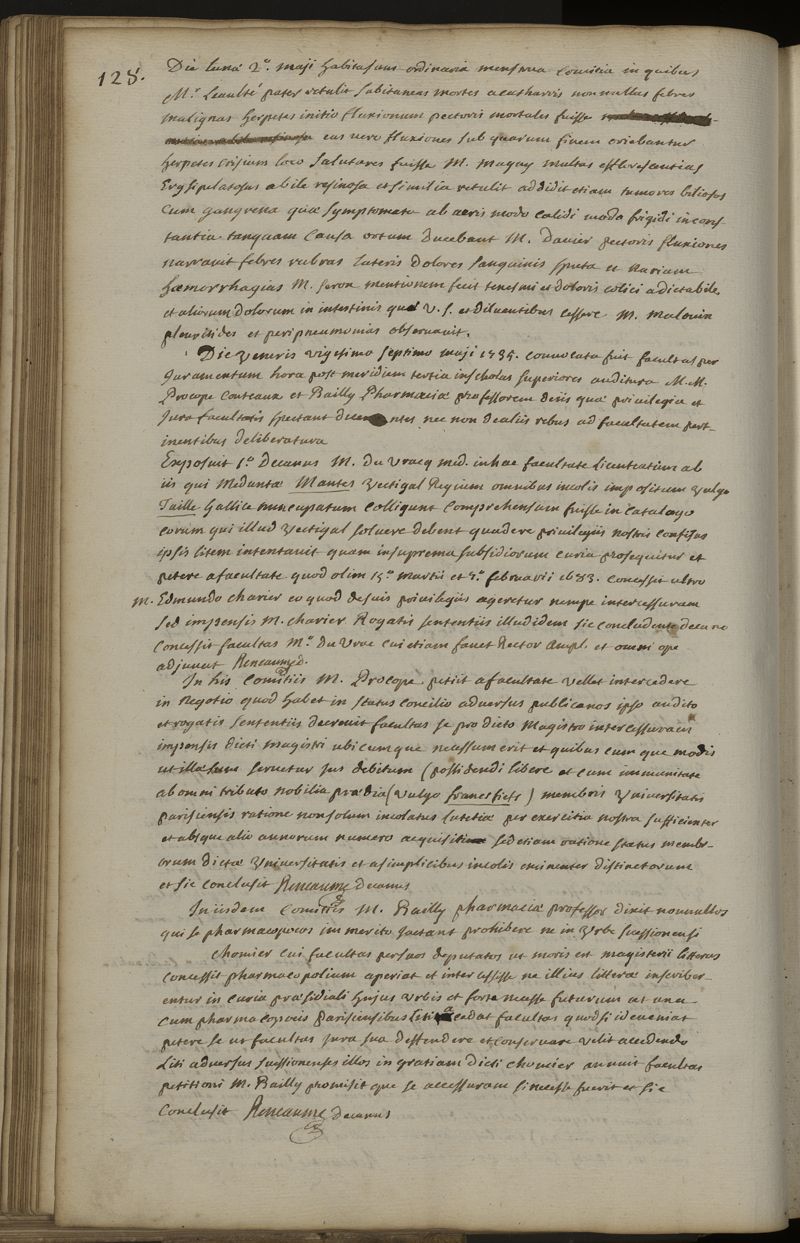 128.
Die Lunæ 2ª. maji habita sunt ordinaria menstrua Comitia in quibus
Mr. Leaulté pater retulit subitaneas mortes a catharris nonnullas febres
malignas herpetes initio fluxionum pectoris mortales fuisse
eas vero fluxiones sub quarum finem oriebantur
herpetes crisium loco salutares fuisse M. Magny multas efflorescentias
Erysipelatosas a bile resinosa et similia retulit addidit etiam tumores biliosos
cum gangrena quæ symptomata ab aeris modo calidi modo frigidi incons-
tantia tanquam causa ortum ducebant M. Davier pectoris fluxiones
narravit febres rubras lateris dolores sanguinis sputa et narium
hæmorrhagias M. Seron mentionem fecit tenesmi et doloris colici
et aliorum dolorum in intestinis quæ v. s. et diluentibus cessere M. Malouin
pleuritides et peripneumonias observavit.
Die Veneris vigesimo septimo maji 1735. convocata fuit facultas per
Juramentum hora post meridiem tertia in scholas superiores auditura M.M.
Procope Couteaux et Bailly Pharmaciæ professorem de iis quæ privilegia et
Jura facultatis spectant nec non de aliis rebus ad facultatem pert-
inentibus deliberatura
Exposuit 1º. Decanus M. Du Vracq med. in hac facultate Licentiatum ab
iis qui Meduntæ Mantes vectigal Regium omnibus incolis impositum vulgo
Taille Gallice nuncupatum colligunt comprehensum fuisse in catalogo
eorum qui illud vectigal solvere debent quadere privilegiis nostris confisus
ipsis litem intentavit quam in suprema subsidiorum curia prosequitur et
petere a facultate quod olim 15º. martii et 7º. februarii 1683. concessit ultro
M. Edmundo Charier eo quod de suis privilegiis ageretur nempe intercessuram
sed impensis M. Charier Rogatis sententiis illud idem sic concludente decano
concessit facultas Mº. Du Vrac cui etiam favet Rector Ampl. et omni ope
adjuvat Reneaume d.
In his Comitiis M. Procope petiit a facultate vellet intercedere
in negotio quod habet in status concilio adversus publicanos ipso audito
et rogatis sententiis decrevit facultas se pro dicto Magistro intercessuram
impensis dicti magistri ubicumque necessum erit et quibuscumque modis
ut illæsum servetur jus debitum (possidendi libere et cum immunitate
ab omni tributo nobilia prædia (vulgo francs fiefs) membris Universitatis
parisiensis ratione non solum incolatus lutetiæ per exercitia nostra sufficienter
et absque alio annorum numero acquisiti sed etiam ratione status membr-
orum dictæ Universitatis et a simplicibus incolis eminenter distinctorum
et sic conclusit Reneaume Decanus
In iisdem Comitiis M. Bailly pharmaciæ professor dixit nonnullos
qui se pharmacopœos immerito jactant prohibere ne in Urbe suessionensi
Chomier cui facultas per suos deputatos ut moris est magisterii litteras
concessit pharmacopolium aperiat et intercessisse ne illius litteræ inscriber-
entur in curia præsidiali hujus Urbis et forte necesse futurum ut una
cum pharmacopœis parisiensibus liti accedat facultas quod si id eveniat
petere se ut facultas jura sua deffendere et conservare velit accedendo
liti adversus suessionenses illos in gratiam dicti Chomier annuit facultas
petitioni M. Bailly promisit que se accessuram si necesse fuerit et sic
conclusit Reneaume Decanus